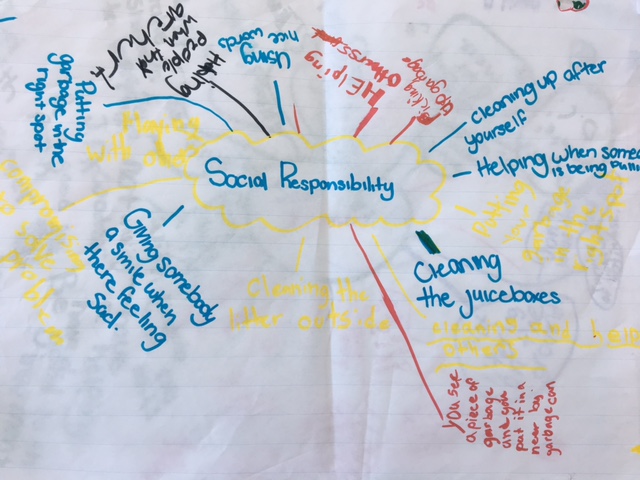 Social Responsibility
Putting
garbage in the
right spot
Helping
People
when that
are hurt
Using
nice words
HELPING
Others
Picking
up garbage
cleaning up after
yourself
Helping when someo
is being bulli
Putting
your
garbage
in the
right spot
Cleaning
the juiceboxes
cleaning and help
others
you see
a piece of
garbage
and
put it in a
near by
garbage can
Cleaning the
litter outside
Giving somebody
a smile when
there feeling
Sad.
to solve
problem
Playing
with others